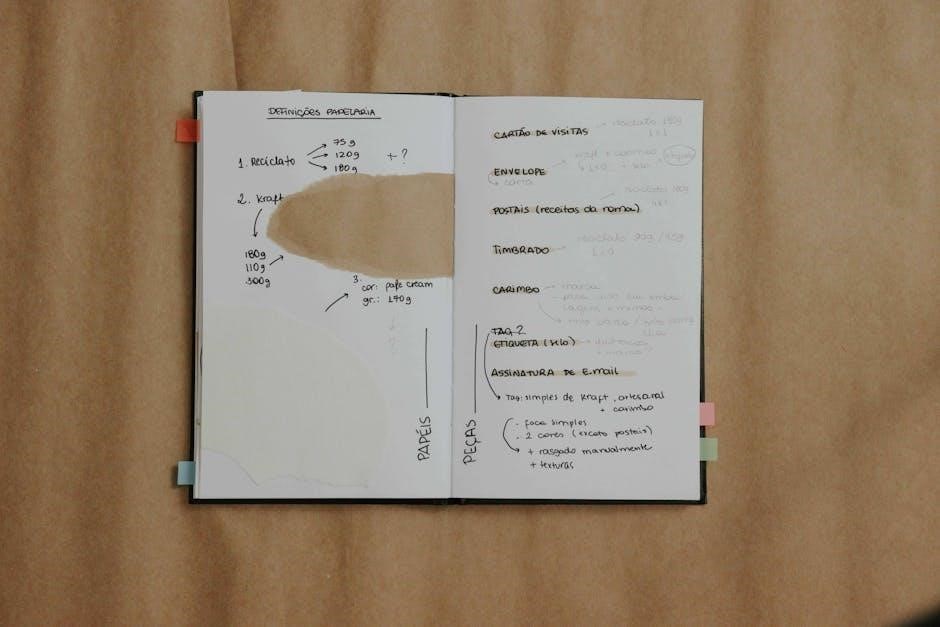 DEFINIÇÕES PAPELARIA
1. Reciclato
75g
120g
180g
+ ?
2. Kraft
180g
110g
300g
3.
cor: pafe cream
gr.: 170g
?
PAPÉIS
PEÇAS
CARTÃO DE VISITAS → reciclato 180g
1x1
ENVELOPE → kraft + carimbo
carta
POSTAIS (receitas da nonna) reciclato 180g
4x1
TIMBRADO → reciclato 90g / 75g
1x0
CARIMBO → marca
TAG?
ETIQUETA (selo)
ASSINATURA DE E.MAIL
TAG: simples de kraft, artesanal
+ carimbo
- faca simples
- 2 cores (exceto postais)
+ rasgado manualmente
+ texturas